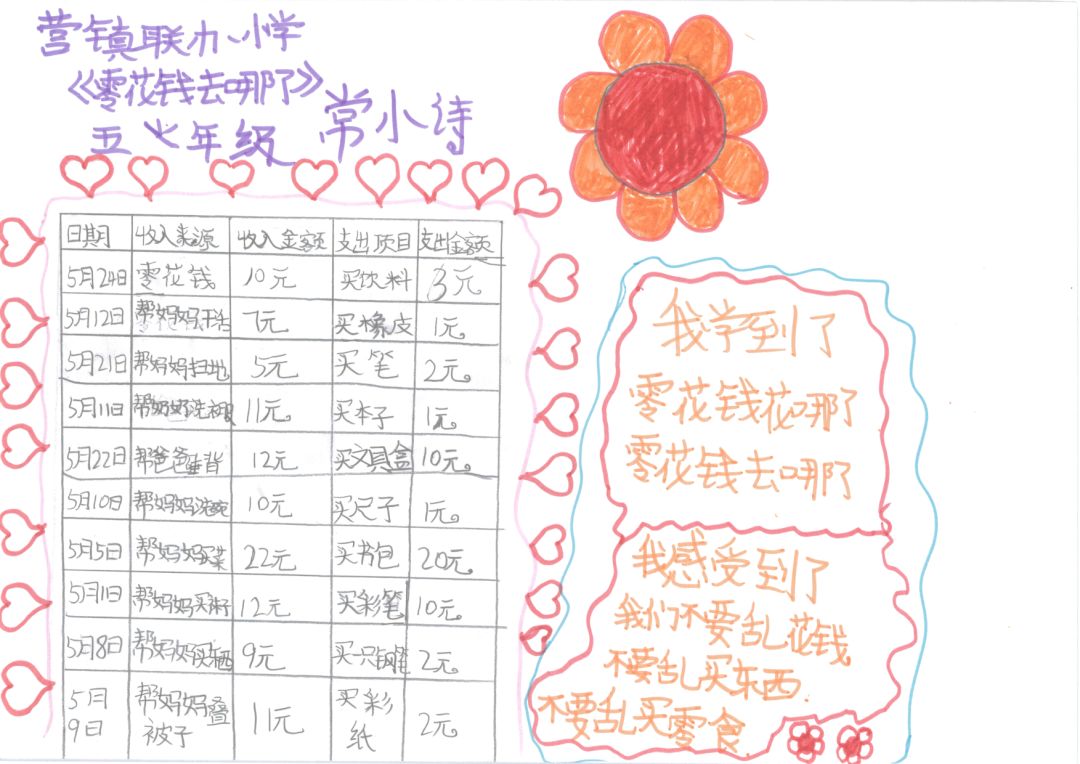 营镇联办小学
《零花钱去哪了》
五七年级 常小诗
日期 收入来源 收入金额 支出项目 支出金额
5月24日 零花钱 10元 买饮料 3元
5月12日 帮妈妈干活 7元 买橡皮 1元。
5月21日 帮妈妈扫地 5元 买笔 2元。
5月11日 帮奶奶洗被 11元。 买本子 1元。
5月22日 帮爸爸垂背 12元 买文具盒 10元。
5月10日 帮妈妈洗碗 10元 买尺子 1元。
5月5日 帮妈妈买菜 22元 买书包 20元。
5月1日 帮妈妈买 12元 买彩笔 10元。
5月8日 帮妈妈买东西 9元 买一只钢笔 2元。
5月9日 帮妈妈叠被子 11元 买彩纸 2元。
我学到了
零花钱花哪了
零花钱去哪了
我感受到了
我们不要乱花钱
不要乱买东西.
不要乱买零食